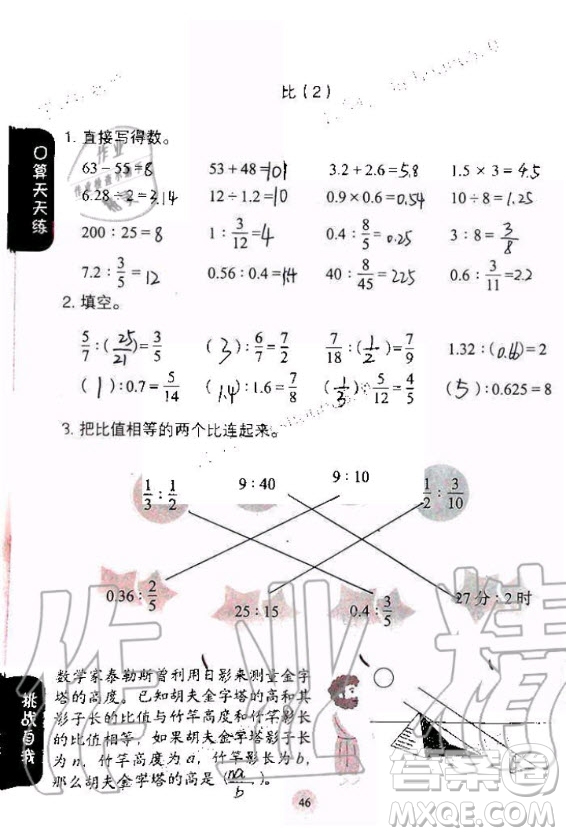 比（2）
口算天天练
1. 直接写得数。
63－55=8 53＋48=101 3.2＋2.6=5.8 1.5×3=4.5
6.28÷2=3.14 12÷1.2=10 0.9×0.6=0.54 10÷8=1.25
200：25=8 1：3/12=4 0.4：8/5=0.25 3：8=3/8
7.2：3/5=12 0.56：0.4=1.4 40：8/45=225 0.6：3/11=2.2
2. 填空。
5/7：(25/21)=3/5 (3)：6/7=7/2 7/18：(1/2)=7/9 1.32：(0.66)=2
(1)：0.7=5/14 (1.4)：1.6=7/8 (1/3)：5/12=4/5 (5)：0.625=8
3. 把比值相等的两个比连起来。
1/3：1/2 9：40 9：10 1/2：3/10
0.36：2/5 25：15 0.4：3/5 27分：2时
挑战自我
数学家泰勒斯曾利用日影来测量金字
塔的高度。已知胡夫金字塔的高和其
影子长的比值与竹竿高度和竹竿影长
的比值相等，如果胡夫金字塔影子长
为n，竹竿高度为a，竹竿影长为b，
那么胡夫金字塔的高是(na/b)。
46
作业精
MXQE.COM